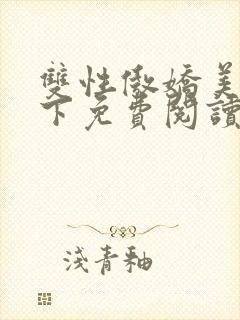 雙性傲嬌美
下免費閱讀
淺青釉